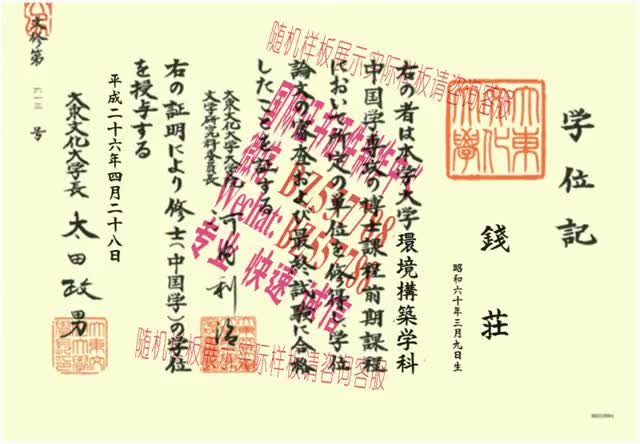 学位記
大東文化大學
錢荘
昭和六十年三月九日生
右の者は本学大学環境構築学科
中国学専攻の博士課程前期課程
において所定の単位を修得し学位
論文の審査および最終試験に合格
したことを証する
大東文化大学大学院
文学研究科委員長
河内利治
右の証明により修士(中国学)の学位
を授与する
平成二十六年四月二十八日
大東文化大学長
太田政男
文修第
号
随机样板展示实际样板请咨询客服
Wechat: BZ557788
BZ557788
专业 快速 诚信
随机样板展示实际样板请咨询客服